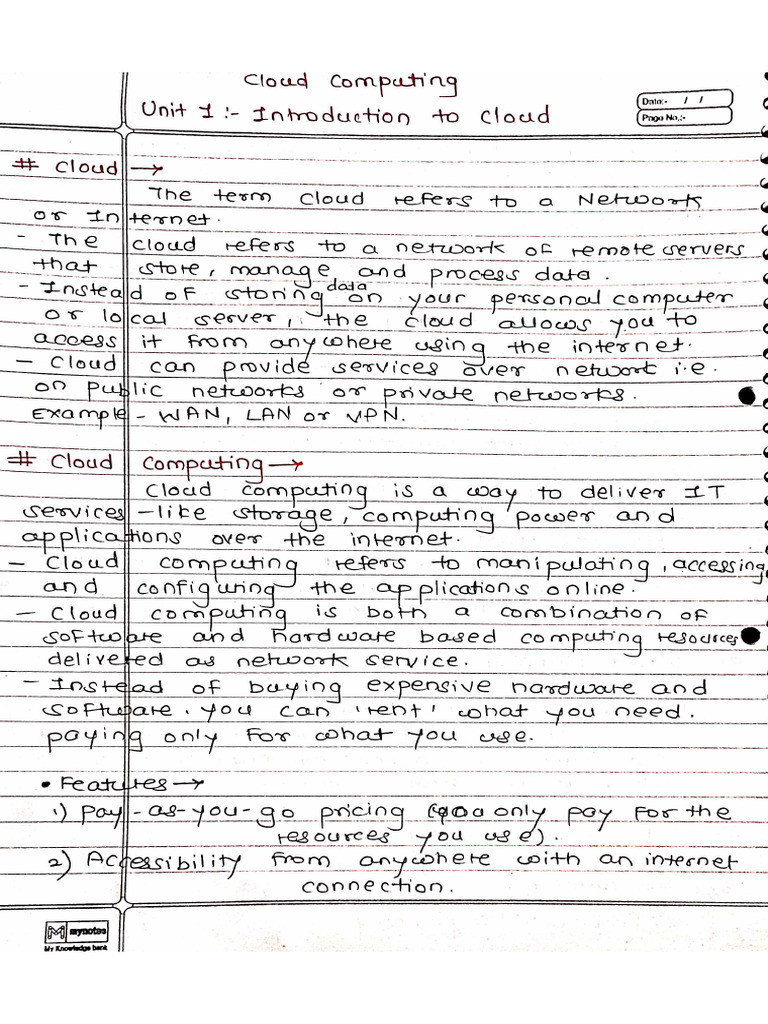 Cloud Computing
Unit 1 :- Introduction to Cloud
Date:- / /
Page No.:-
# Cloud →
The term Cloud refers to a Network
or Internet.
- The cloud refers to a network of remote servers
that store, manage and process data.
- Instead of storing data on your personal computer
or local server, the cloud allows you to
access it from anywhere using the internet.
- Cloud can provide services over network i.e.
on public networks or private networks.
Example - WAN, LAN or VPN.
# Cloud Computing →
Cloud computing is a way to deliver IT
services - like storage, computing power and
applications over the internet.
- Cloud computing refers to manipulating, accessing
and configuring the applications online.
- Cloud computing is both a combination of
software and hardware based computing resources
delivered as network service.
- Instead of buying expensive hardware and
software. you can 'rent' what you need.
paying only for what you use.
• Features →
1) Pay-as-you-go pricing (you only pay for the
resources you use).
2) Accessibility from anywhere with an internet
connection.
mynotes
My Knowledge bank